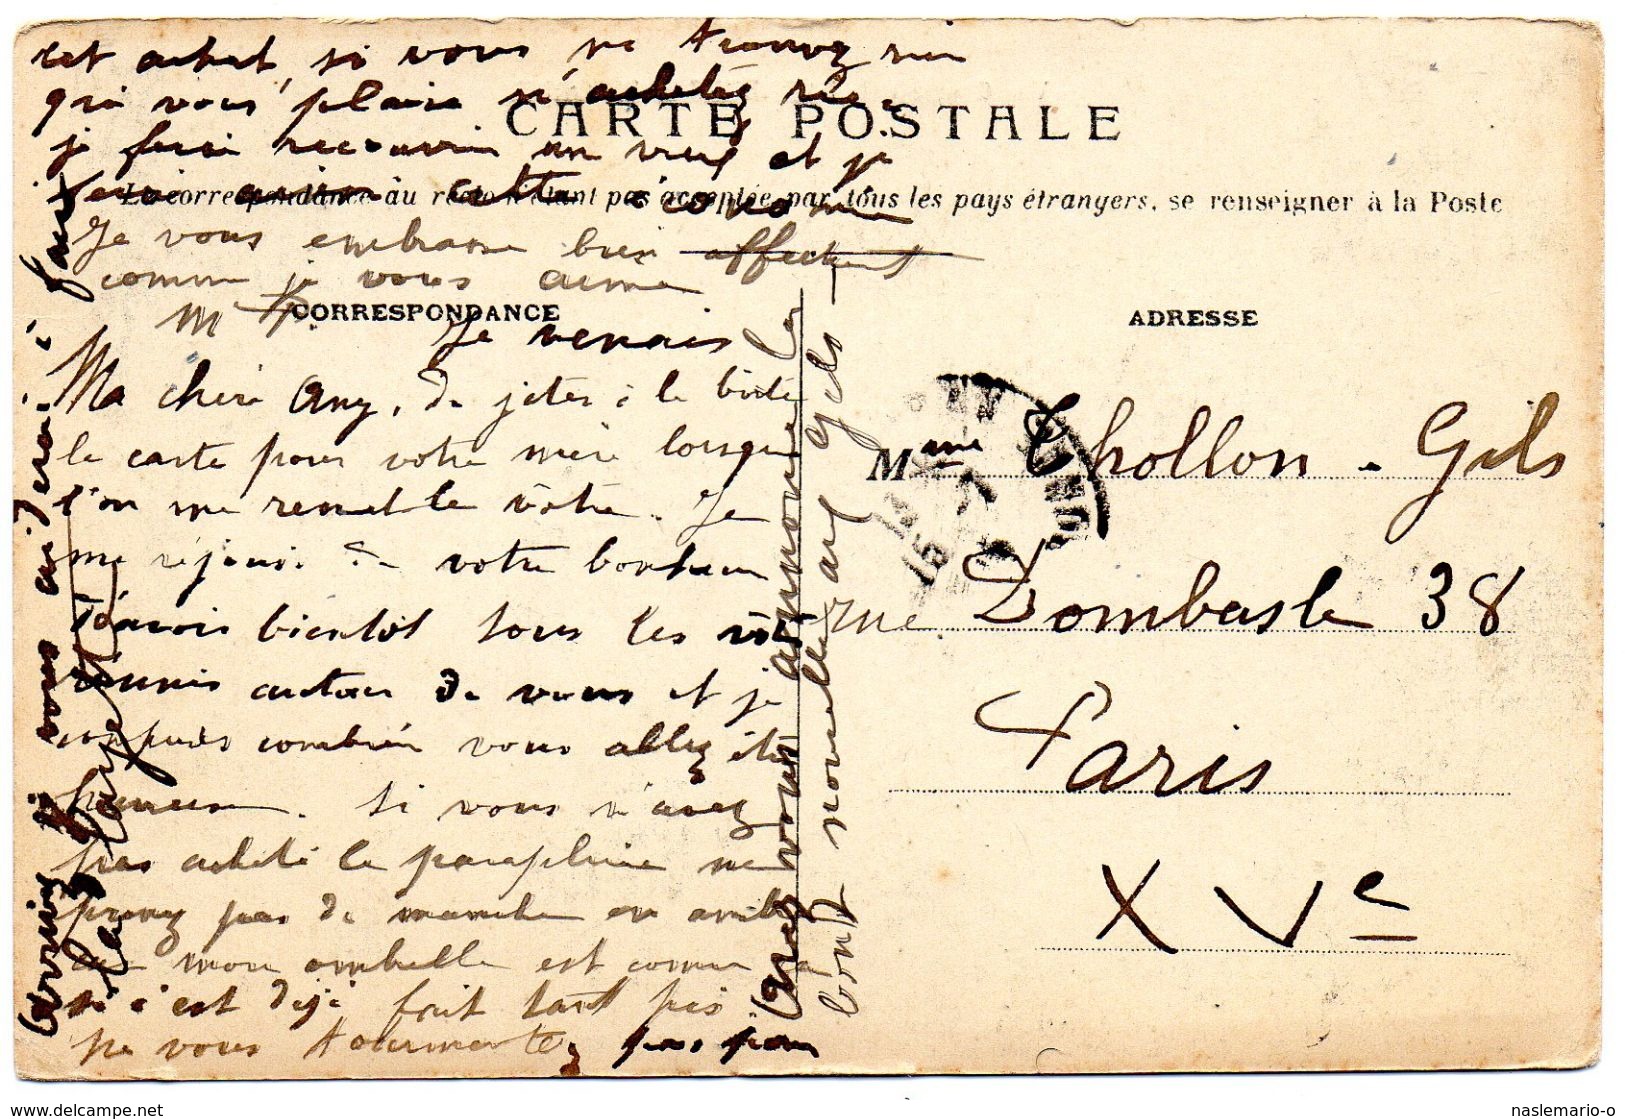 CARTE POSTALE
La correspondance au recto n'étant pas acceptée par tous les pays étrangers, se renseigner à la Poste
CORRESPONDANCE
ADRESSE
Je venais
Ma chère Any, de jeter à la boîte
la carte pour votre mère lorsque
l'on me remet la vôtre. Je
me réjouis de votre bonheur
d'avoir bientôt tous les vôtres
réunis autour de vous et je
comprends combien vous allez être
heureuse. Si vous n'avez
pas acheté le parapluie ne
prenez pas de manche en
car mon ombrelle est comme ça
si c'est déjà fait tant pis
ne vous tourmentez pas pour
cet achat, si vous ne trouvez rien
qui vous plaise n'achetez rien
je ferai recouvrir un vieux et je
ferai ainsi cette économie
Je vous embrasse bien affect
comme je vous aime
M P.
Mme Thollon-Gils
rue Dombasle 38
Paris
XVe
vous annoncer la
bonne nouvelle aux Gils
je vous ai
naslemario-o
www.delcampe.net